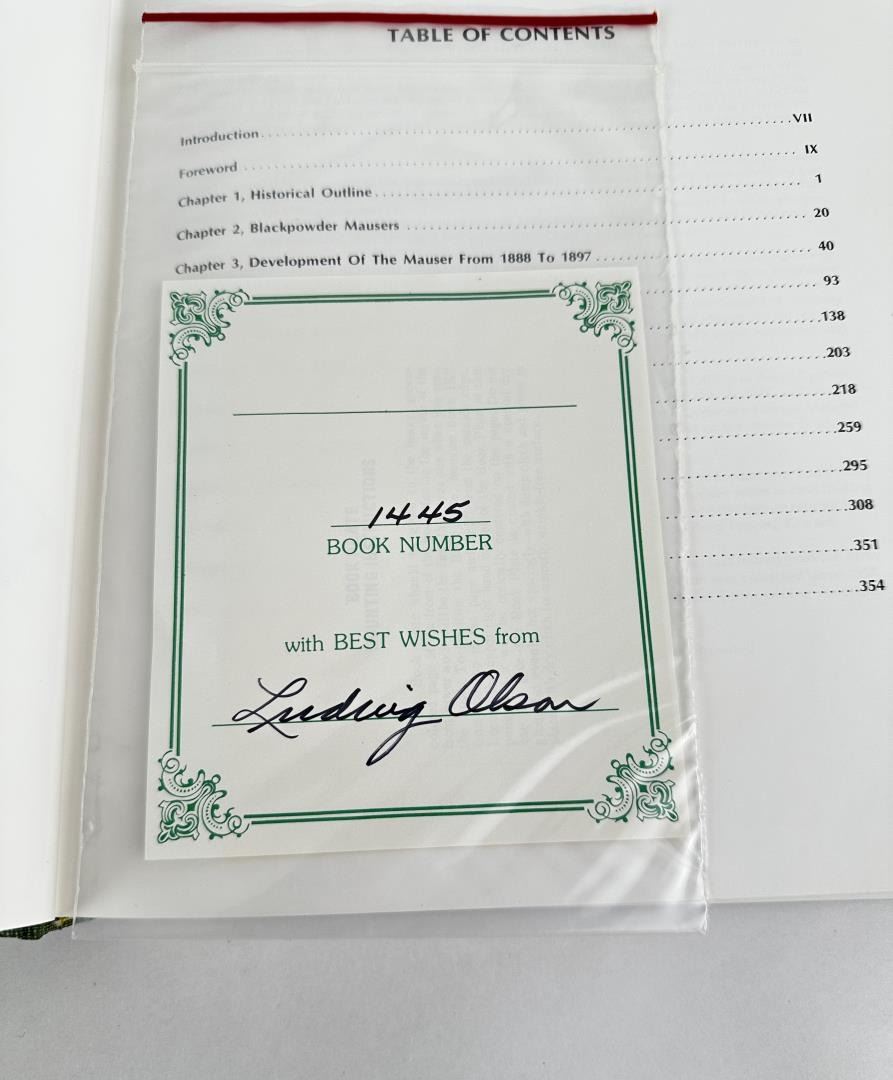 TABLE OF CONTENTS
Introduction . . . . . . . . . . VII
Foreword . . . . . . . . . . IX
Chapter 1, Historical Outline . . . . . . . . . . 1
Chapter 2, Blackpowder Mausers . . . . . . . . . . 20
Chapter 3, Development Of The Mauser From 1888 To 1897 . . . . . . . . . . 40
. . . . . . . . . . 93
. . . . . . . . . . 138
. . . . . . . . . . 203
. . . . . . . . . . 218
. . . . . . . . . . 259
. . . . . . . . . . 295
. . . . . . . . . . 308
. . . . . . . . . . 351
. . . . . . . . . . 354
1445
BOOK NUMBER
with BEST WISHES from
Ludwig Olson